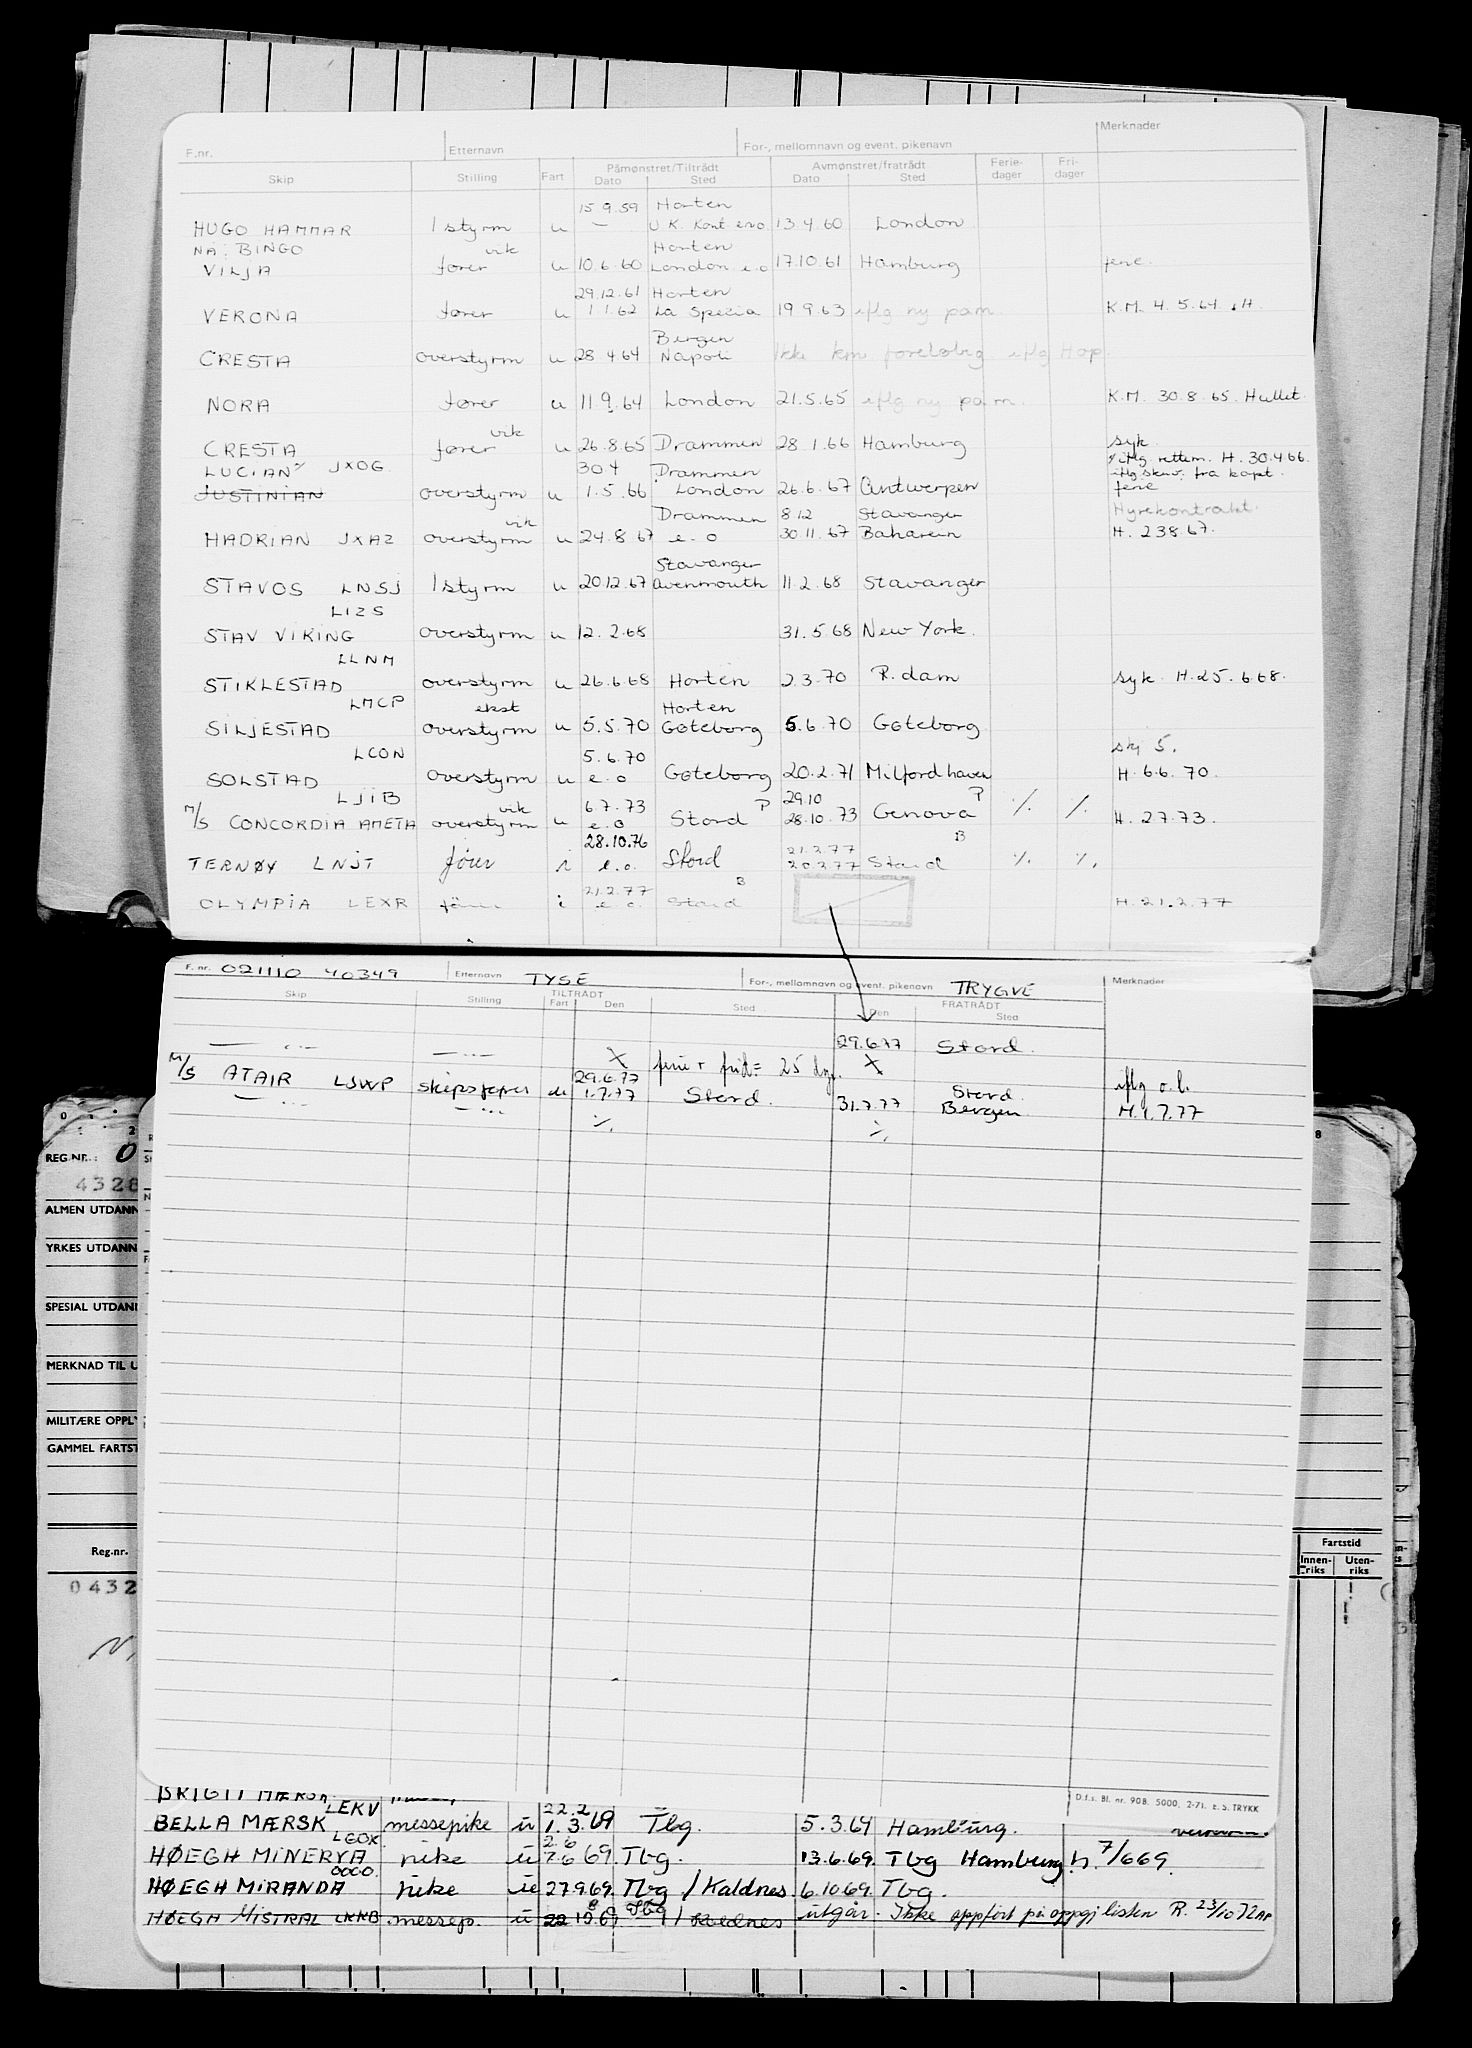 F.nr. Etternavn For-, mellomnavn og event. pikenavn Merknader
Skip Stilling Fart Påmønstret/Tiltrådt Dato Sted Avmønstret/fratrådt Dato Sted Ferie-dager Fri-dager
15.9.59 Horten
HUGO HAMMAR 1 styrm u — U.K. Kont e.o. 13.4.60 London
NÅ: BINGO vik Horten
VILJA fører u 10.6.60 London e.o 17.10.61 Hamburg ferie.
29.12.61 Horten
VERONA fører u 1.1.62 La Spezia 19.9.63 iflg ny påm K.M. 4.5.64. H.
Bergen
CRESTA overstyrm u 28.4.64 Napoli Ikke km foreløbig iflg Hop
NORA fører u 11.9.64 London 21.5.65 iflg ny påm. K.M. 30.8.65. Hullet.
vik
CRESTA fører u 26.8.65 Drammen 28.1.66 Hamburg syk.
LUCIAN JXOG 30 4 Drammen iflg rettem. H. 30.4.66.
iflg skriv. fra kapt.
JUSTINIAN overstyrm u 1.5.66 London 26.6.67 Antwerpen ferie
vik Drammen 8.12 Stavanger Hyrekontrakt.
HADRIAN JXAZ overstyrm u 24.8.67 e.o 30.11.67 Baharein H. 23.8.67.
Stavanger
STAVOS LNSJ 1 styrm u 20.12.67 Avenmouth 11.2.68 Stavanger
LIZS
STAV VIKING overstyrm u 12.2.68 31.5.68 New York.
LLNM
STIKLESTAD overstyrm u 26.6.68 Horten 2.3.70 R.dam syk. H. 25.6.68.
LMCP ekst Horten
SILJESTAD overstyrm u 5.5.70 Gøteborg 5.6.70 Gøteborg
LCON 5.6.70 skj 5.
SOLSTAD overstyrm u e.o Gøteborg 20.2.71 Milfordhaven H. 6.6.70.
LJIB vik 6.7.73 P 29.10 P
M/S CONCORDIA AMETA overstyrm u e.o Stord 28.10.73 Genova ·/. ·/. H. 2.7.73.
28.10.76 21.2.77 B
TERNØY LNJT fører i e.o. Stord 20.2.77 Stord ·/. ·/.
21.2.77 B
OLYMPIA LEXR fører i e.o. Stord H. 21.2.77
F.nr. 021110 40349 Etternavn TYSE For-, mellomnavn og event. pikenavn TRYGVE Merknader
Skip Stilling TILTRÅDT Fart Den Sted FRATRÅDT Den Sted
— " — — " — 29.6.77 Stord.
X ferie + frid = 25 dgr. X
M/S ATAIR LJWP skipsfører 29.6.77 Stord. iflg o.l.
— " — — " — 1.7.77 Stord. 31.7.77 Bergen H. 1.7.77
·/. ·/.
REG.NR.: 0
4328
ALMEN UTDANN
YRKES UTDANN
SPESIAL UTDANN
MERKNAD TIL U
MILITÆRE OPPLY
GAMMEL FARTST
Reg.nr. Fartstid
Innen-riks Uten-riks
0432
D.f.s. Bl. nr. 908. 5000. 2-71. E.S. TRYKK
LEKV 22.2
BELLA MÆRSK messepike u 1.3.69 Tbg. 5.3.69 Hamburg.
LGOX 2.6
HØEGH MINERVA pike u 7.6 69 Tbg. 13.6.69. Tbg Hamburg h. 7/6 69.
HØEGH MIRANDA pike u 27.9.69. Tbg / Kaldnes 6.10.69. Tbg.
HØEGH MISTRAL LKKB messep. u Tbg / Kaldnes utgår. Ikke oppført på oppgj listen R. 23/10 72